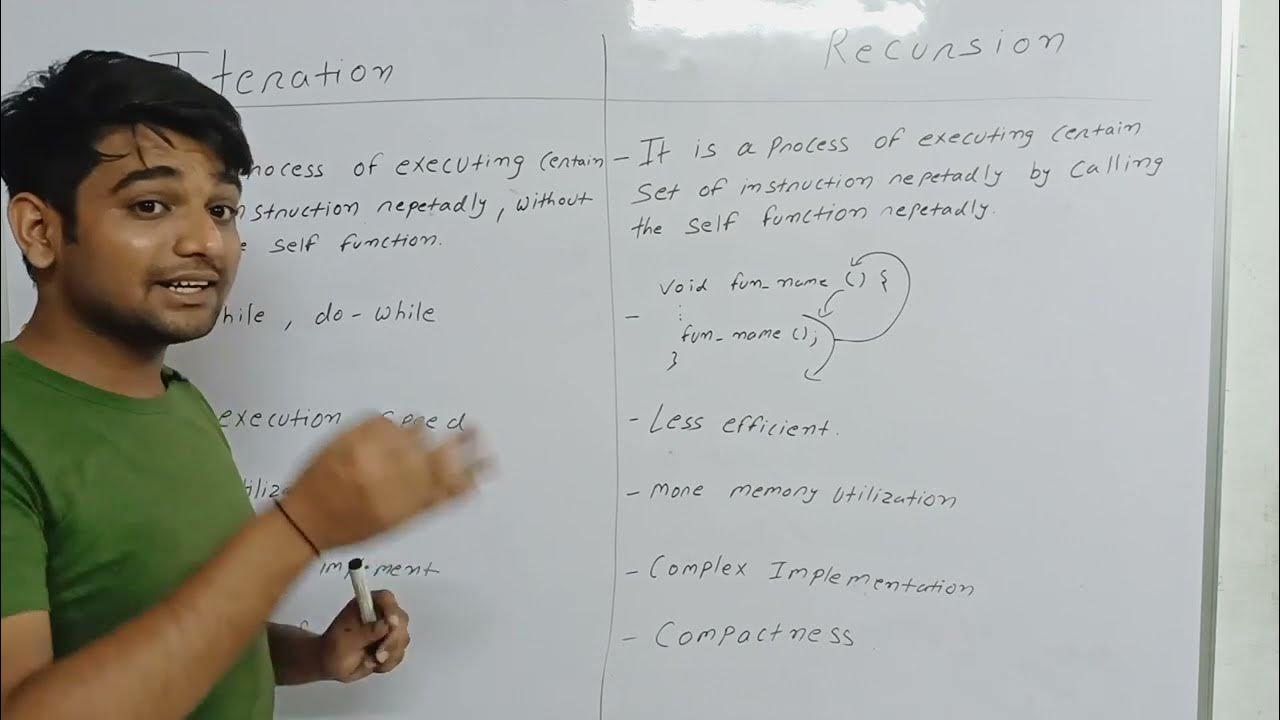 Iteration
Recursion
Process of executing certain
instruction repetadly, without
self function.
while, do-while
execution speed
implement
- It is a process of executing certain
set of instruction repetadly by calling
the self function repetadly.
void fun_name () {
- :
fun_name ();
}
- Less efficient.
- more memory utilization
- Complex Implementation
- Compactness